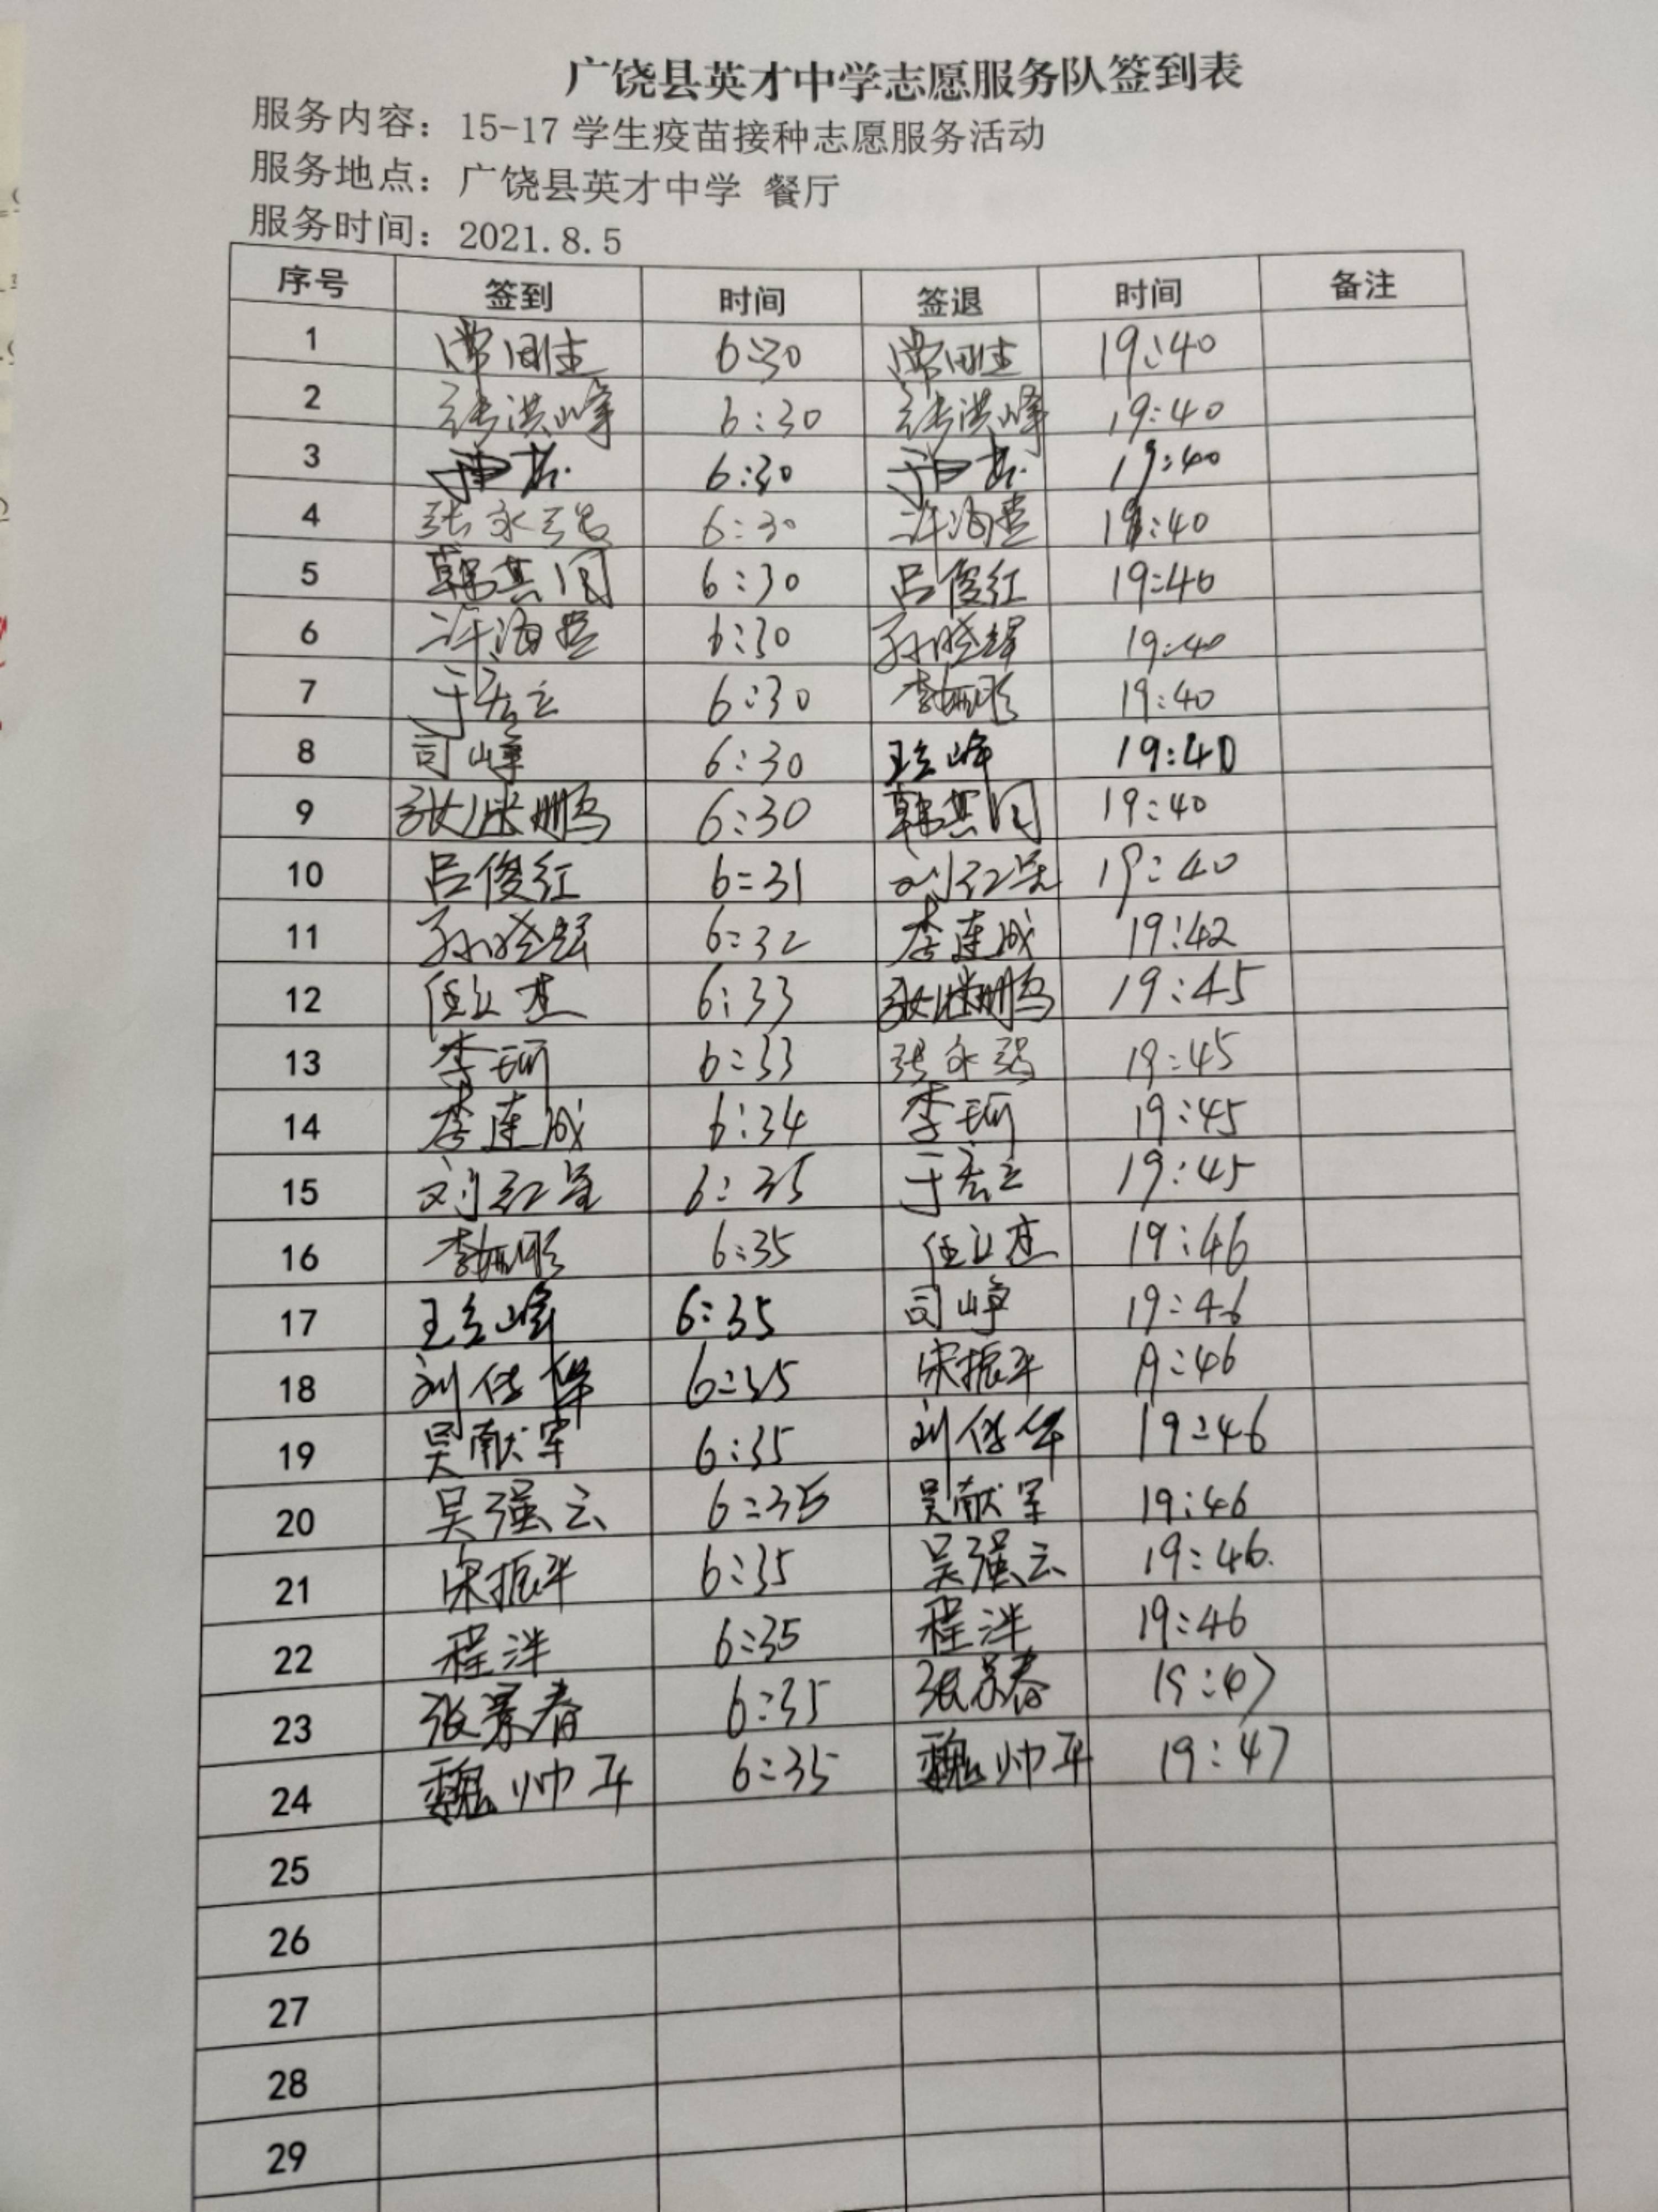 广饶县英才中学志愿服务队签到表
服务内容：15-17学生疫苗接种志愿服务活动
服务地点：广饶县英才中学 餐厅
服务时间：2021.8.5
序号 签到 时间 签退 时间 备注
1 6:30 19:40
2 张洪峰 6:30 张洪峰 19:40
3 6:30 19:40
4 张永强 6:30 许海营 19:40
5 韩其同 6:30 吕俊红 19:40
6 许海营 6:30 19:40
7 6:30 19:40
8 司峰 6:30 19:40
9 6:30 韩其同 19:40
10 吕俊红 6:31 19:40
11 6:32 李连成 19:42
12 任立杰 6:33 19:45
13 李珂 6:33 张永强 19:45
14 李连成 6:34 李珂 19:45
15 6:35 19:45
16 6:35 任立杰 19:46
17 6:35 19:46
18 刘传华 6:35 宋振平 19:46
19 吴献军 6:35 刘传华 19:46
20 吴强云 6:35 吴献军 19:46
21 宋振平 6:35 吴强云 19:46.
22 程泮 6:35 程泮 19:46
23 张景春 6:35 张景春 19:47
24 魏帅平 6:35 魏帅平 19:47
25
26
27
28
29